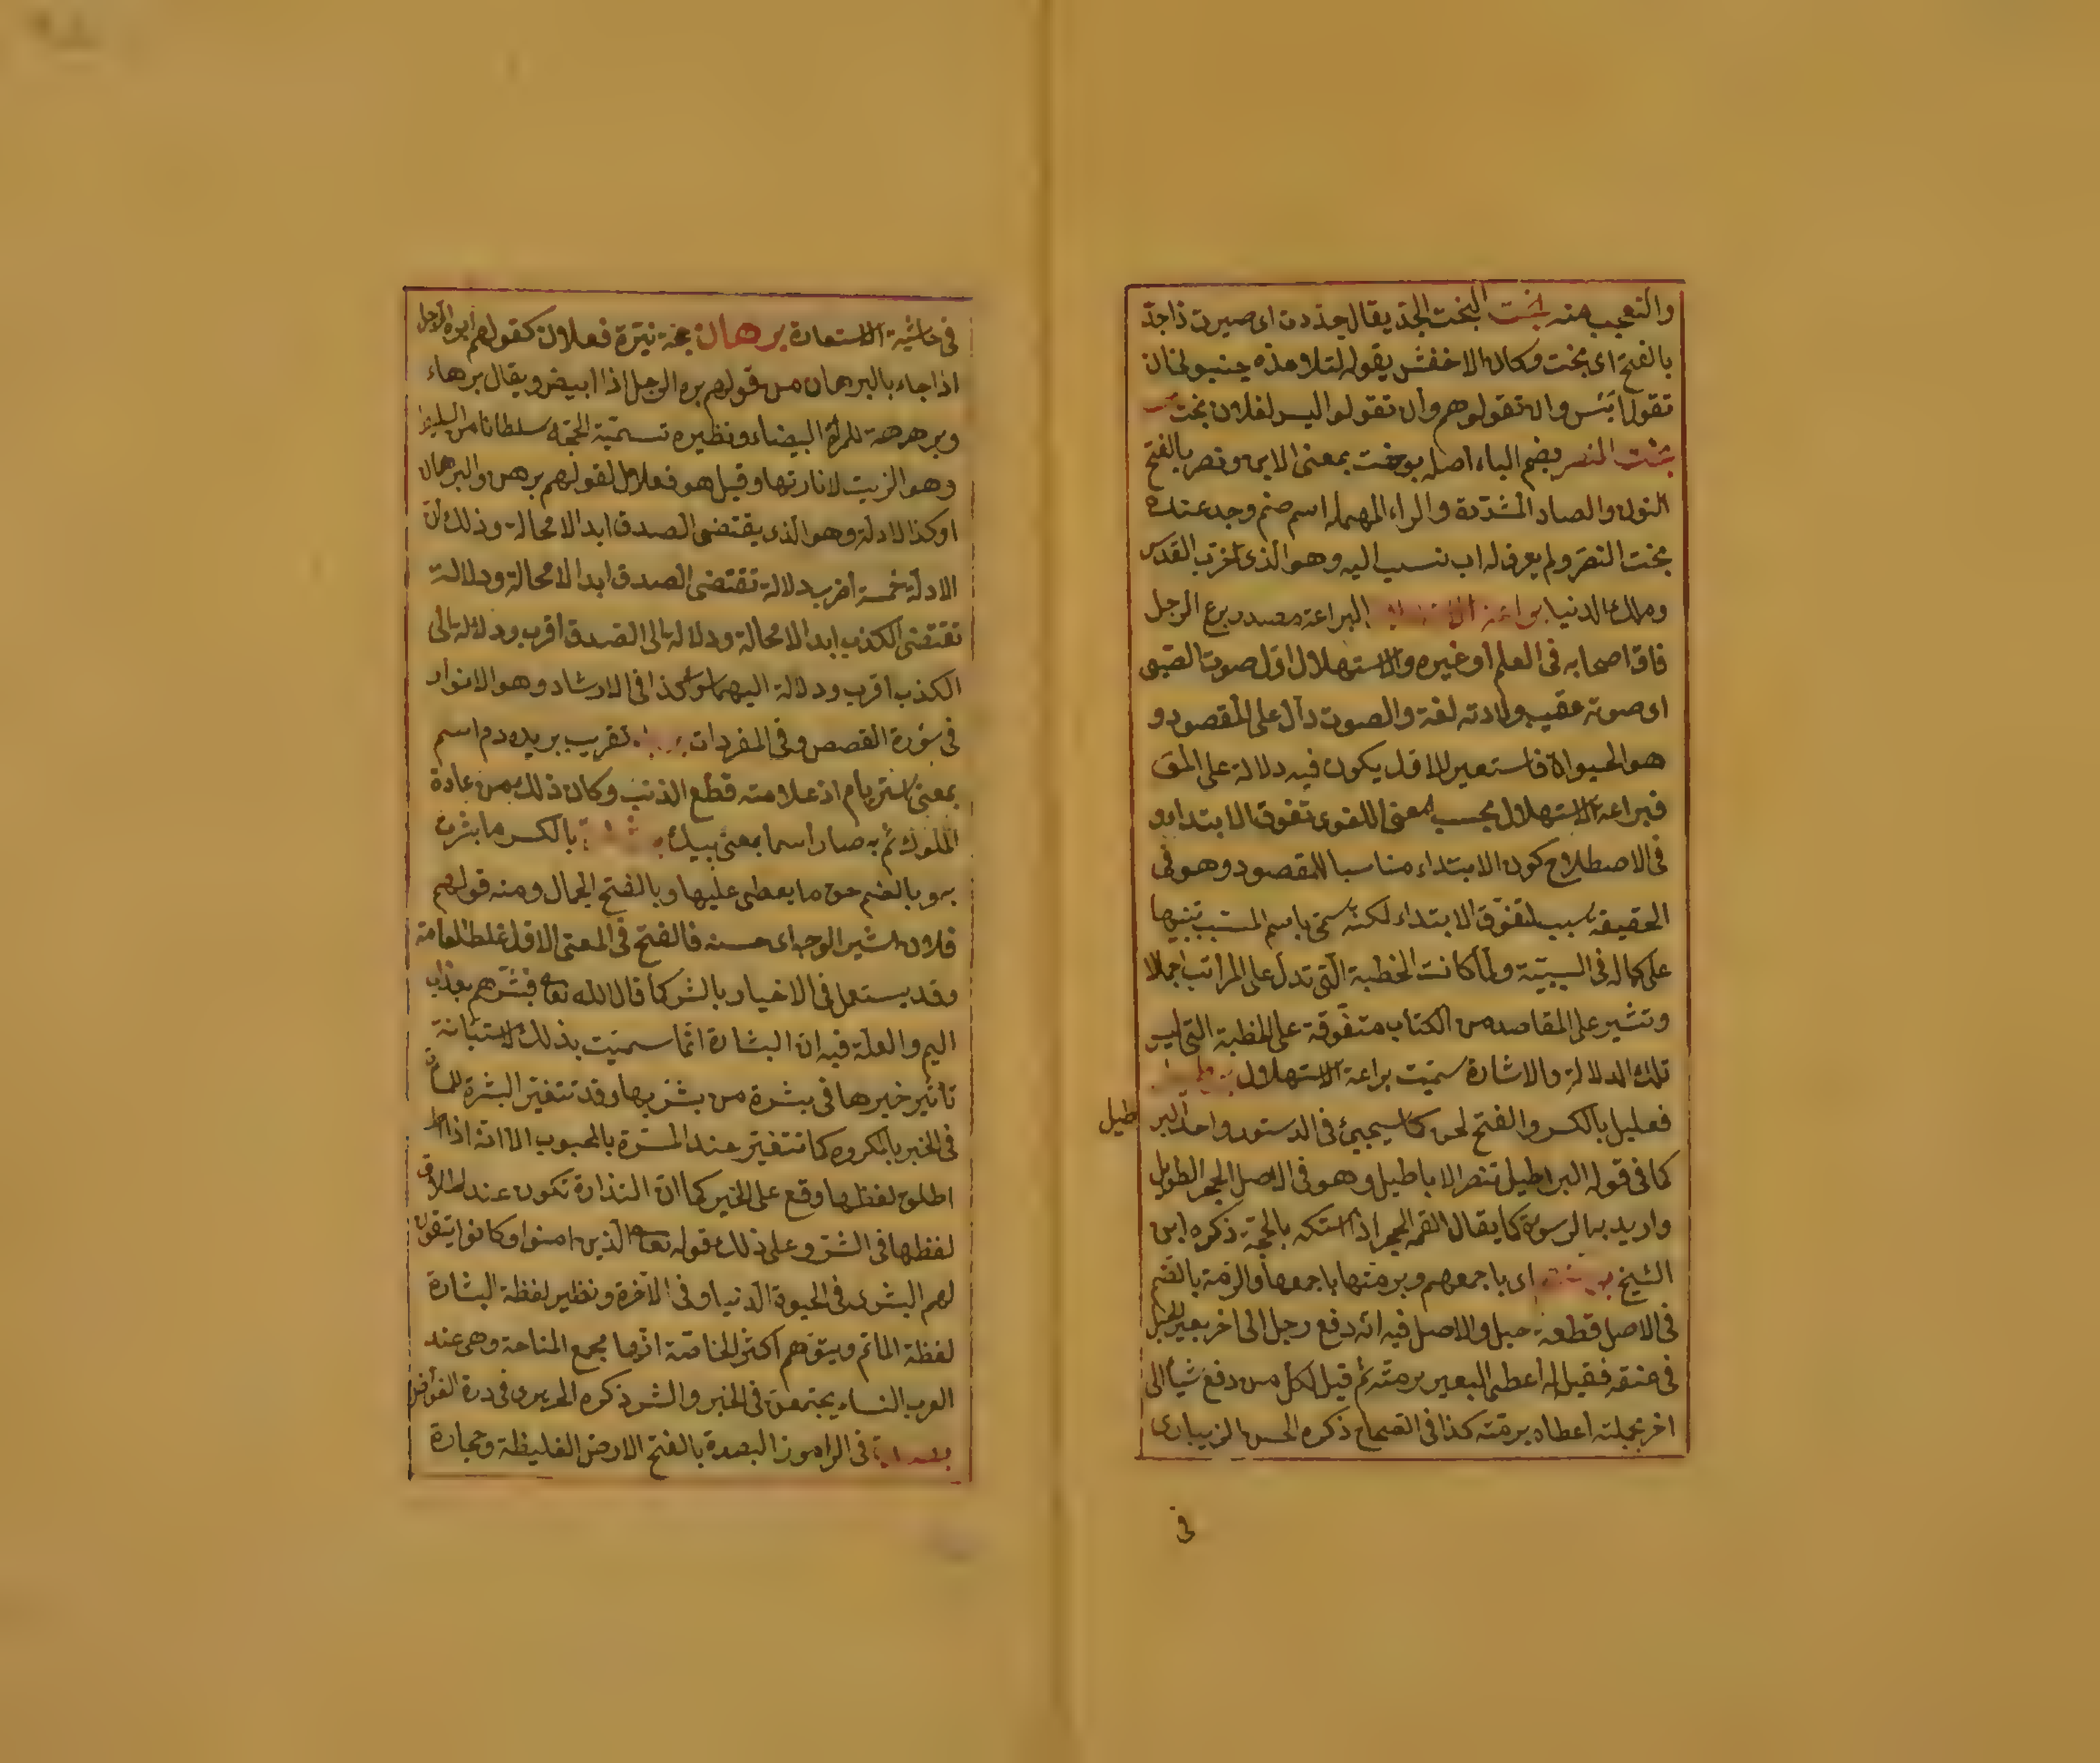 والتعجب منه بخت البخت الجذ يقال جذدت اى صيرت ذا جذ
بالفتح اى بخت وكان الاخفش يقول لتلامذه جنبونى ان
تقولوا بئس وان تقولوهم وان تقولوا ليس لفلان بخت
بخت النصر بضم الباء اصله بوخت بمعنى الابن ونصر بالفتح
النون والصاد المشددة والراء المهملة اسم صنم وجد عنده
بخت النصر ولم يعرف له اب نسب اليه وهو الذى خرب القدس
وملك الدنيا براعة البراعة مصدر برع الرجل
فاق اصحابه فى العلم او غيره والاستهلال اول صوت الصبى
اى صوته عقيب ولادته لغة والصوت دال على المقصود و
هو الحيوة فاستعير لاول يكون فيه دلالة على المق
فبراعة الاستهلال بحسب المعنى اللغوى تفوق الابتداء و
فى الاصطلاح كون الابتداء مناسبا للمقصود وهو فى
الحقيقة سبب لتفوق الابتداء لكنه سمى باسم المسبب تنبيها
على كماله فى السببية ولما كانت الخطبة التى تدل على المراتب اجمالا
وتشير على المقاصد من الكتاب متفوقة على الخطبة التى ليس
تلك الدلالة والاشارة سميت براعة الاستهلال
فعليل بالكسر والفتح لحن كما سيجيئ فى الدستور واحد البر
طيل
كما فى قوله البراطيل تنصر الاباطيل وهو فى الاصل الحجر الطويل
واريد به الرسوة كما يقال القمه الحجر اذا اسكته بالحجة ذكره ابن
الشيخ اى باجمعهم وبرمتها باجمعها والرمة بالضم
فى الاصل قطعة حبل والاصل فيه انه دفع رجل الى اخر بعير الحبل
فى عنقه فقيل له اعطى البعير برمته ثم قيل لكل من دفع شيأ الى
اخر بجملته اعطاه برمته كذا فى الصحاح ذكره الحسن الزيبارى
فى
فى حاشية الاستعارة برهان نيرة فعلان كقولهم ابره الرجل
اذا جاء بالبرهان من قولهم بره الرجل اذا ابيض ويقال برهاء
وبرهرهة للمرأة البيضاء ونظيره تسمية الحجة سلطانا من السليط
وهو الزيت لانارتها وقيل هو فعلال لقولهم برهن والبرهان
اوكذ الادلة وهو الذى يقتضى الصدق ابدا لامحالة وذلك ان
الادلة خمسة اضرب دلالة تقتضى الصدق ابدا لامحالة ودلالة
تقتضى الكذب ابدا لامحالة ودلالة الى الصدق اقرب ودلالة الى
الكذب اقرب ودلالة اليهما سواء كذا فى الارشاد وهو الانوار
فى سورة القصص وفى المفردات تقريب بريده دم اسم
بمعنى اذ علامته قطع الذنب وكان ذلك من عادة
الملوك ثم به صار اسما بمعنى پيك بالكسر ما بشرت
به وبالضم حق ما يعطى عليها وبالفتح الجمال ومنه قولهم
فلان بشير الوجه اى حسنه فالفتح فى المعنى الاول غلط العامة
وقد يستعمل فى الاخبار بالشر كما قال الله تعا فبشرهم بعذاب
اليم والعلة فيه ان البشارة انما سميت بذلك لاستبانة
تاثير خبرها فى بشرة من بشر بها وقد تتغير البشرة
فى الخبر بالمكروه كما تتغير عند المسرة بالمحبوب الا انه اذا
اطلق لفظها وقع على الخير كما ان النذارة تكون عند اطلاق
لفظها فى الشر وعلى ذلك قوله تعا الذين امنوا وكانوا يتقون
لهم البشرى فى الحيوة الدنيا وفى الآخرة ونظير لفظة البشارة
لفظة الماتم ويتوهم اكثر الخاصة انها مجمع المناحة وهى عند
العرب النساء يجتمعن فى الخير والشر ذكره الحريرى فى درة الغواص
فى الراموز البصرة بالفتح الارض الغليظة وحجارة